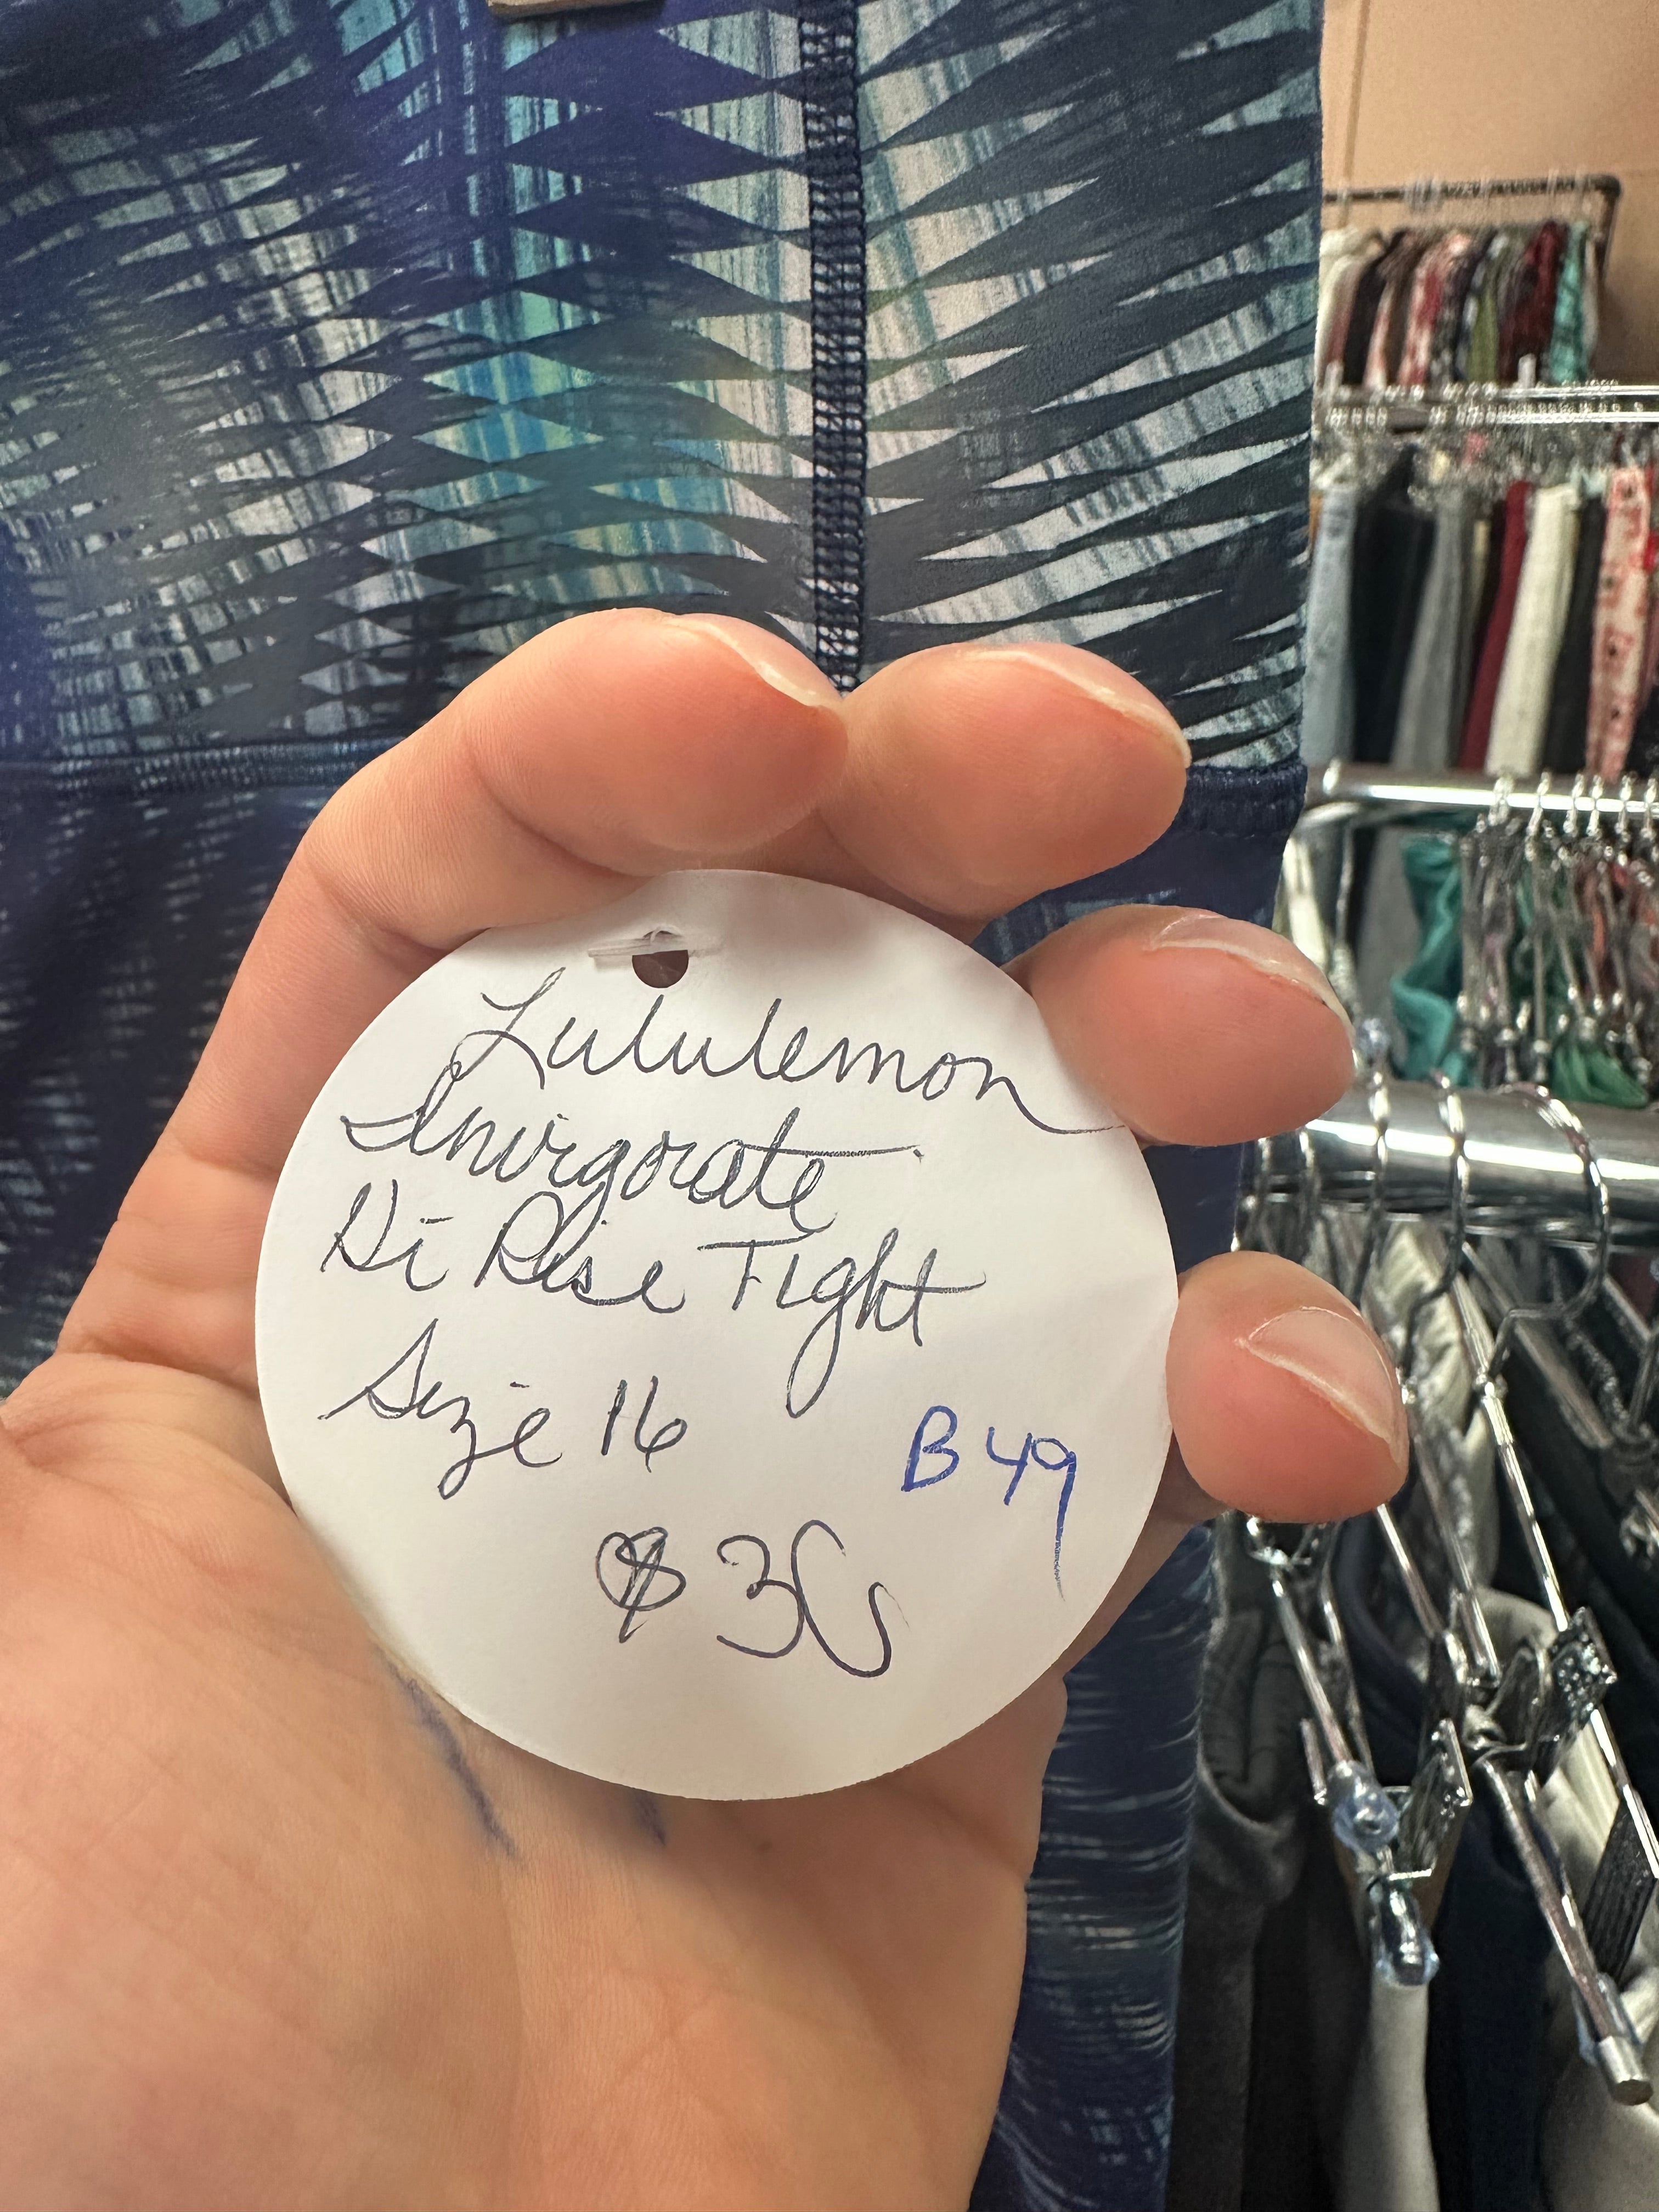 Lululemon
Invigorate
Hi Rise Tight
Size 16
B49
$30